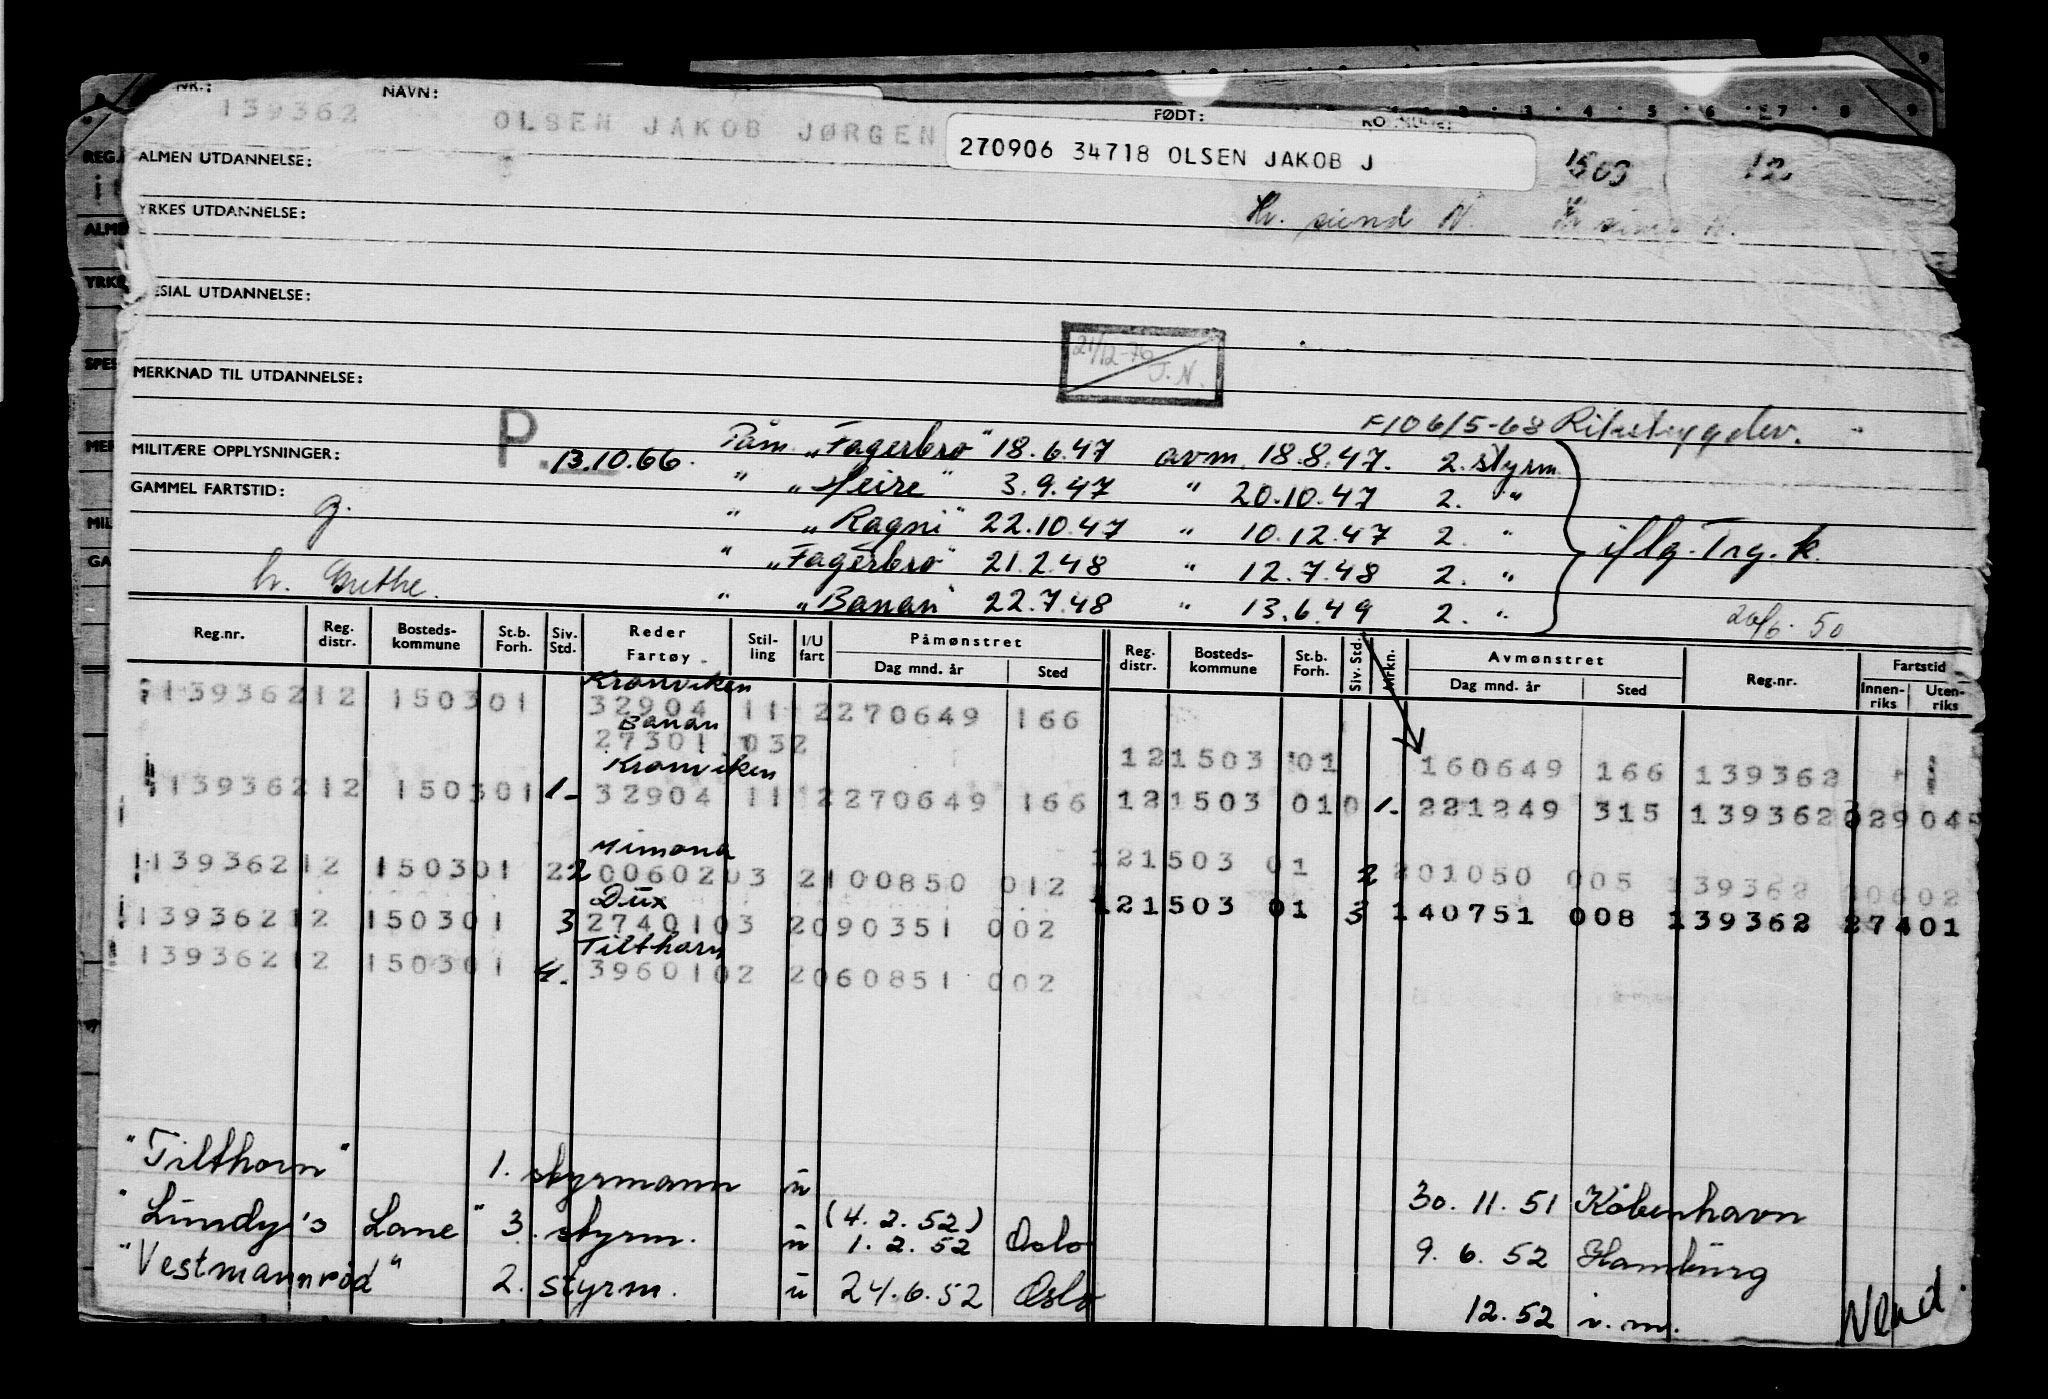 NR.: NAVN: FØDT:
139362 OLSEN JAKOB JØRGEN
270906 34718 OLSEN JAKOB J
1503 12.
ALMEN UTDANNELSE:
YRKES UTDANNELSE:
Kr. sund N. Kr sund N.
SPESIAL UTDANNELSE:
21/12-70 J.N.
MERKNAD TIL UTDANNELSE:
MILITÆRE OPPLYSNINGER: P. 13.10.66.
Påm. „Fagerbro" 18.6.47 avm. 18.8.47. 2. styrm.
GAMMEL FARTSTID: g.
" „Heire" 3.9.47 " 20.10.47 2. "
" „Ragni" 22.10.47 " 10.12.47 2. "
iflg. Trg. k.
" „Fagerbro" 21.2.48 " 12.7.48 2. "
h. Grethe.
" „Banan" 22.7.48 " 13.6.49 2. "
26/6. 50
Reg.nr. Reg. distr. Bosteds-kommune St.b. Forh. Siv. Std. Reder Fartøy Stil-ling I/U fart Påmønstret Dag mnd. år Sted Reg. distr. Bosteds-kommune St.b. Forh. Siv. Std. Mrkn. Avmønstret Dag mnd. år Sted Reg.nr. Fartstid Innen-riks Uten-riks
Kronviken
139362 12 1503 01 32904 11 2 270649 166
Banan
27301 032 12 1503 01 160649 166 139362
Kronviken
139362 12 1503 01 1- 32904 11 2 270649 166 12 1503 01 0 1- 221249 315 139362 32904
Mimona
139362 12 1503 01 2 2 00602 03 2 100850 012 121503 01 2 201050 005 139362 00602
Dux
139362 12 1503 01 3 27401 03 2 090351 002 121503 01 3 140751 008 139362 27401
Tilthorn
139362 12 1503 01 4. 39601 02 2 060851 002
"Tilthorn" 1. styrmann u 30. 11. 51 København
"Lundy's Lane" 3. styrm. u (4. 2. 52) 1. 2. 52 Oslo 9. 6. 52 Hamburg
"Vestmannrød" 2. styrm. u 24.6.52 Oslo 12. 52 i. m.
Vend.